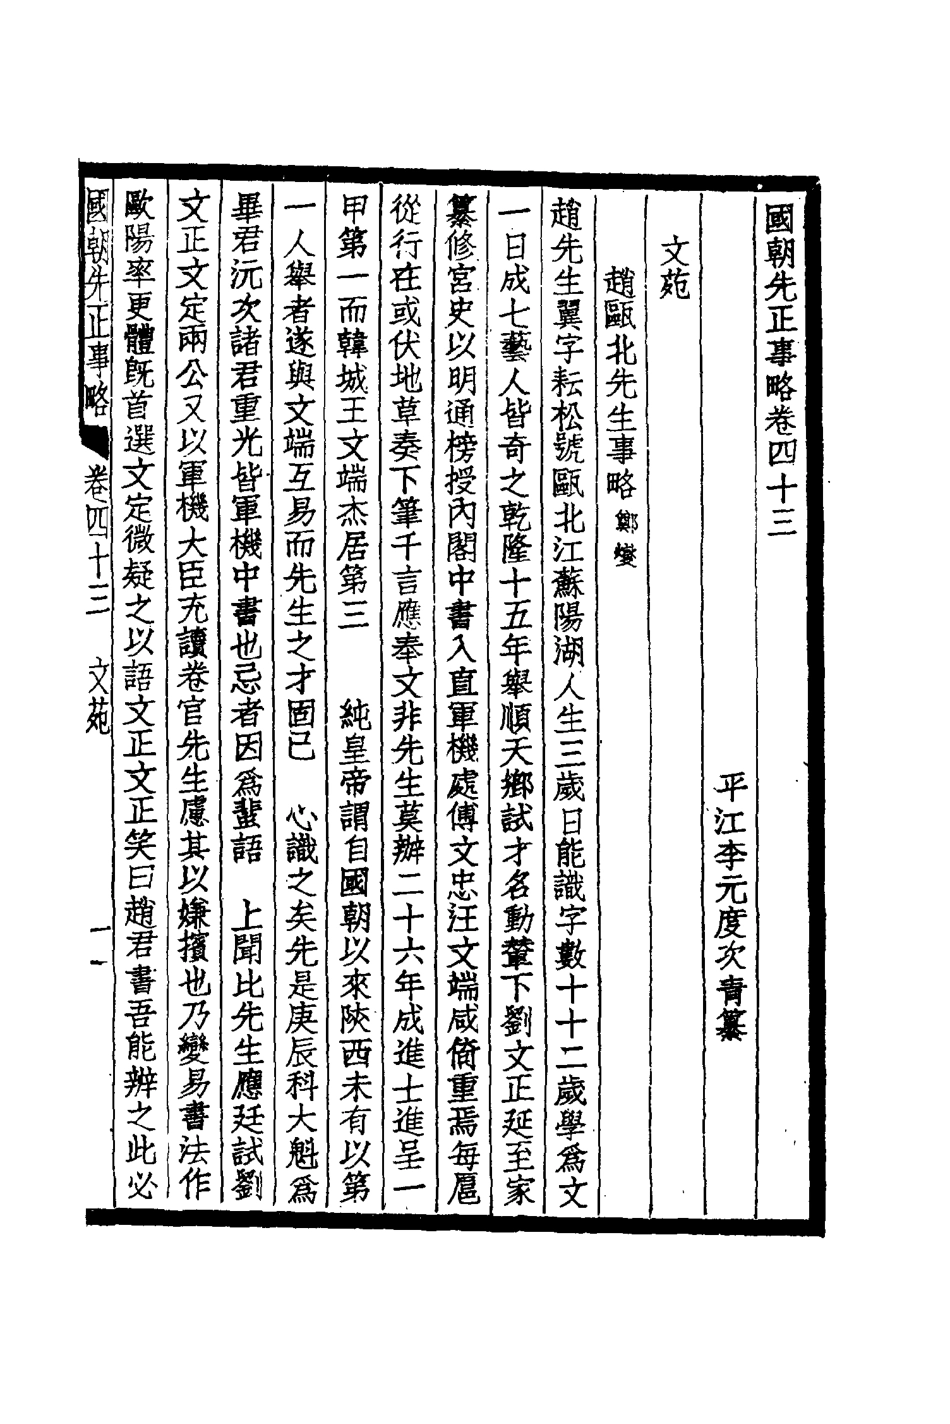 國朝先正事略卷四十三
平江李元度次青纂
文苑
趙甌北先生事略 鄭燮
趙先生翼字耘松號甌北江蘇陽湖人生三歲日能識字數十十二歲學爲文
一日成七藝人皆奇之乾隆十五年舉順天鄉試才名動輦下劉文正延至家
纂修宮史以明通榜授內閣中書入直軍機處傅文忠汪文端咸倚重焉每扈
從行在或伏地草奏下筆千言應奉文非先生莫辦二十六年成進士進呈一
甲第一而韓城王文端杰居第三　純皇帝謂自國朝以來陝西未有以第
一人舉者遂與文端互易而先生之才固已　心識之矣先是庚辰科大魁爲
畢君沅次諸君重光皆軍機中書也忌者因爲蜚語　上聞比先生應廷試劉
文正文定兩公又以軍機大臣充讀卷官先生慮其以嫌擯也乃變易書法作
歐陽率更體旣首選文定微疑之以語文正文正笑曰趙君書吾能辨之此必
國朝先正事略　卷四十三　文苑　一